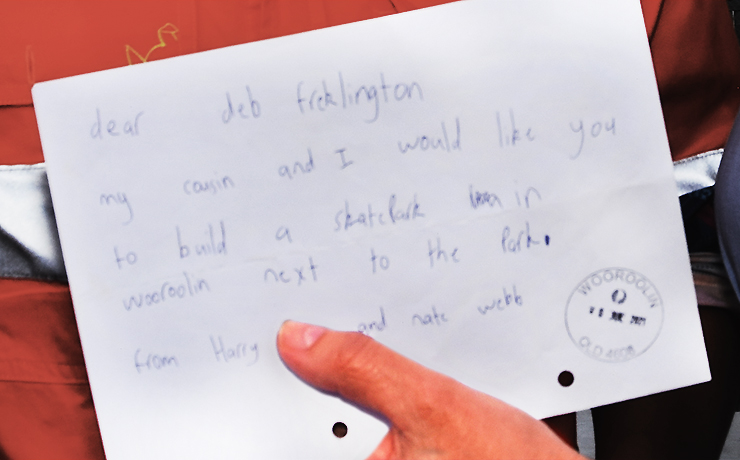 dear deb frcklington
my cousin and I would like you
to build a skatePark in
wooroolin next to the Park.
from Harry and nate webb
WOOROOLIN
QLD 4608